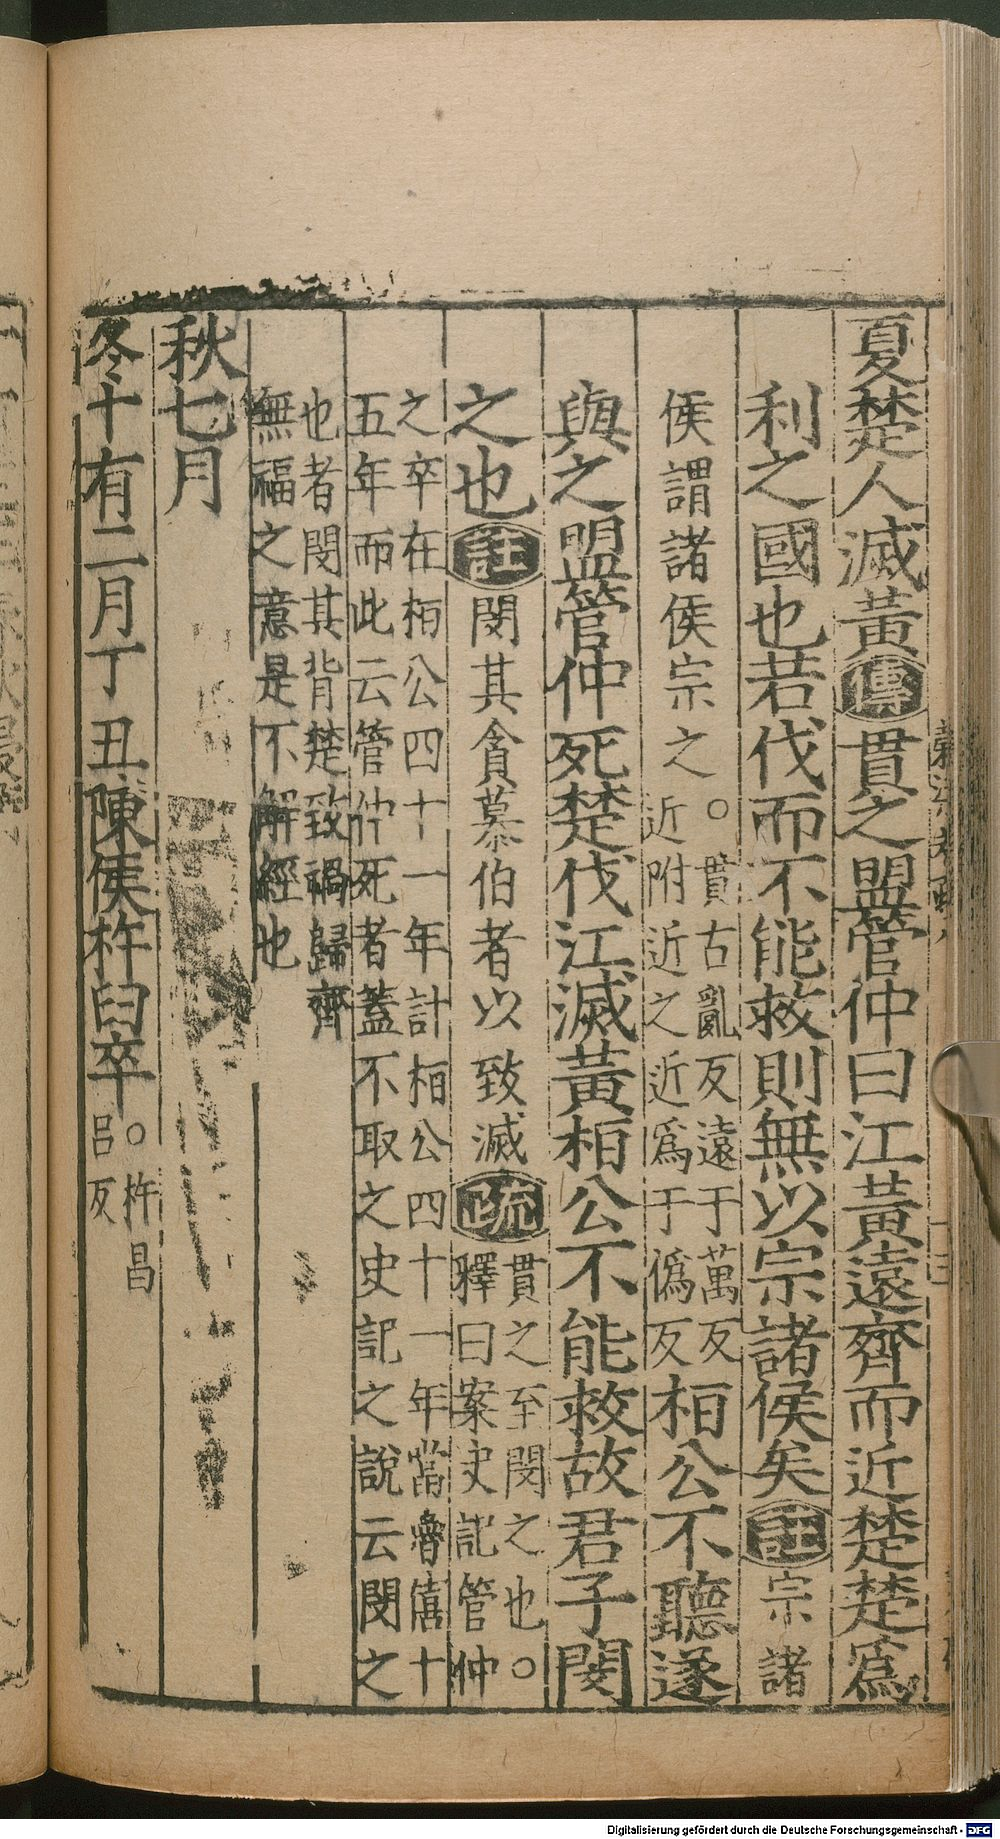 夏楚人滅黃傳貫之盟管仲曰江黃遠齊而近楚楚爲
利之國也若伐而不能救則無以宗諸侯矣註宗諸
侯謂諸侯宗之○貫古亂反遠于萬反
近附近之近爲于僞反桓公不聽遂
與之盟管仲死楚伐江滅黃桓公不能救故君子閔
之也註閔其貪慕伯者以致滅疏貫之至閔之也○
釋曰案史記管仲
之卒在桓公四十一年計桓公四十一年當魯僖十
五年而此云管仲死者蓋不取之史記之說云閔之
也者閔其背楚致禍歸齊
無福之意是不解經也
秋七月
冬十有二月丁丑陳侯杵臼卒○杵昌
呂反
Digitalisierung gefördert durch die Deutsche Forschungsgemeinschaft - DFG